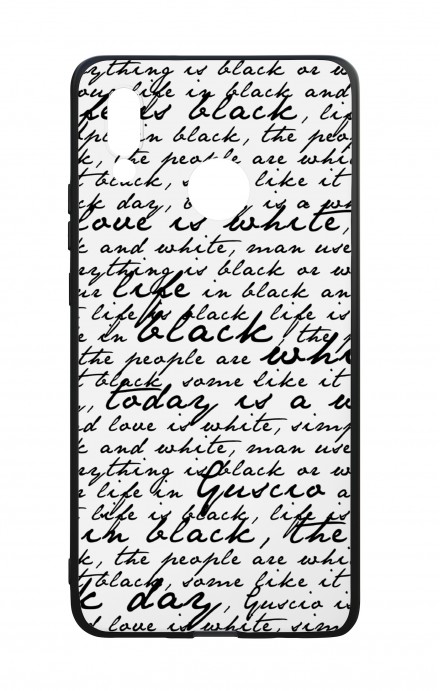 rything is black or w
our life in black and
life is black, lif
in black, the peo
k, the people are whi
t black, s like it
ck day, is a wh
love is white,
k and white, man use
rything is black or w
ur life in black an
t life is black, life is
e in black, the p
the people are whi
t black, some like it
, today is a w
d love is white, simp
k and white, man use
rything is black or w
r life in Guscio a
t life is black, life is
in black, the
k, the people are whi
t black, some like it
k day, Guscio is
s love is white, sim